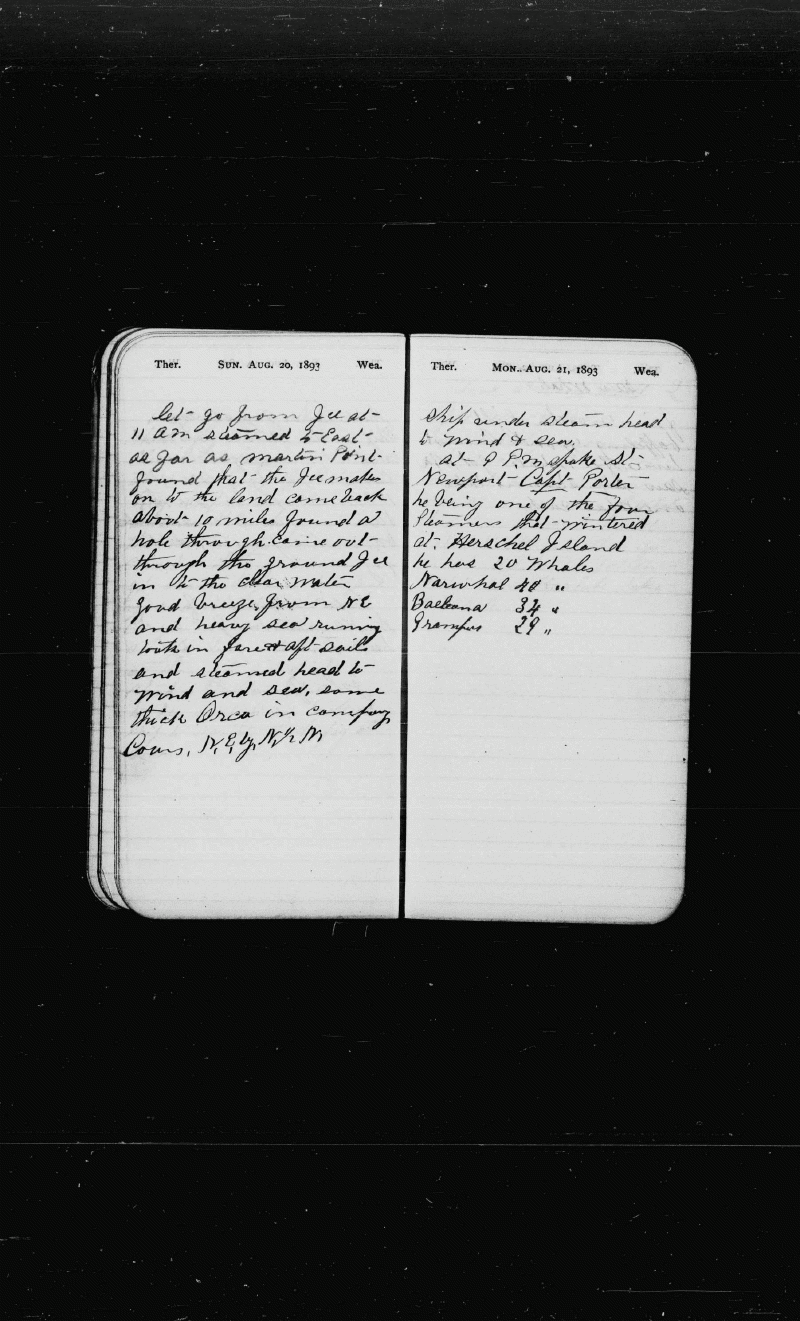 Ther. SUN. AUG. 20, 1893 Wea.
let go from Ice at
11 am steamed to East
as far as martin Point
found that the Ice makes
on to the land came back
about 10 miles found a
hole through came out
through the ground Ice
in to the clear water
good breeze from NE
and heavy sea runing
took in fore & aft sails
and steamed head to
wind and sea, some
thick Orca in company
Cours, N,E, by N,
Ther. MON. AUG. 21, 1893 Wea.
Ship under steam head
to wind & sea
at P.M spoke St
Newport Capt Porter
he being one of the four
Steamers that wintered
at Herschel Island
he has 20 Whales
Narwhal 40 "
Baeleana 34 "
Grampus 29 "